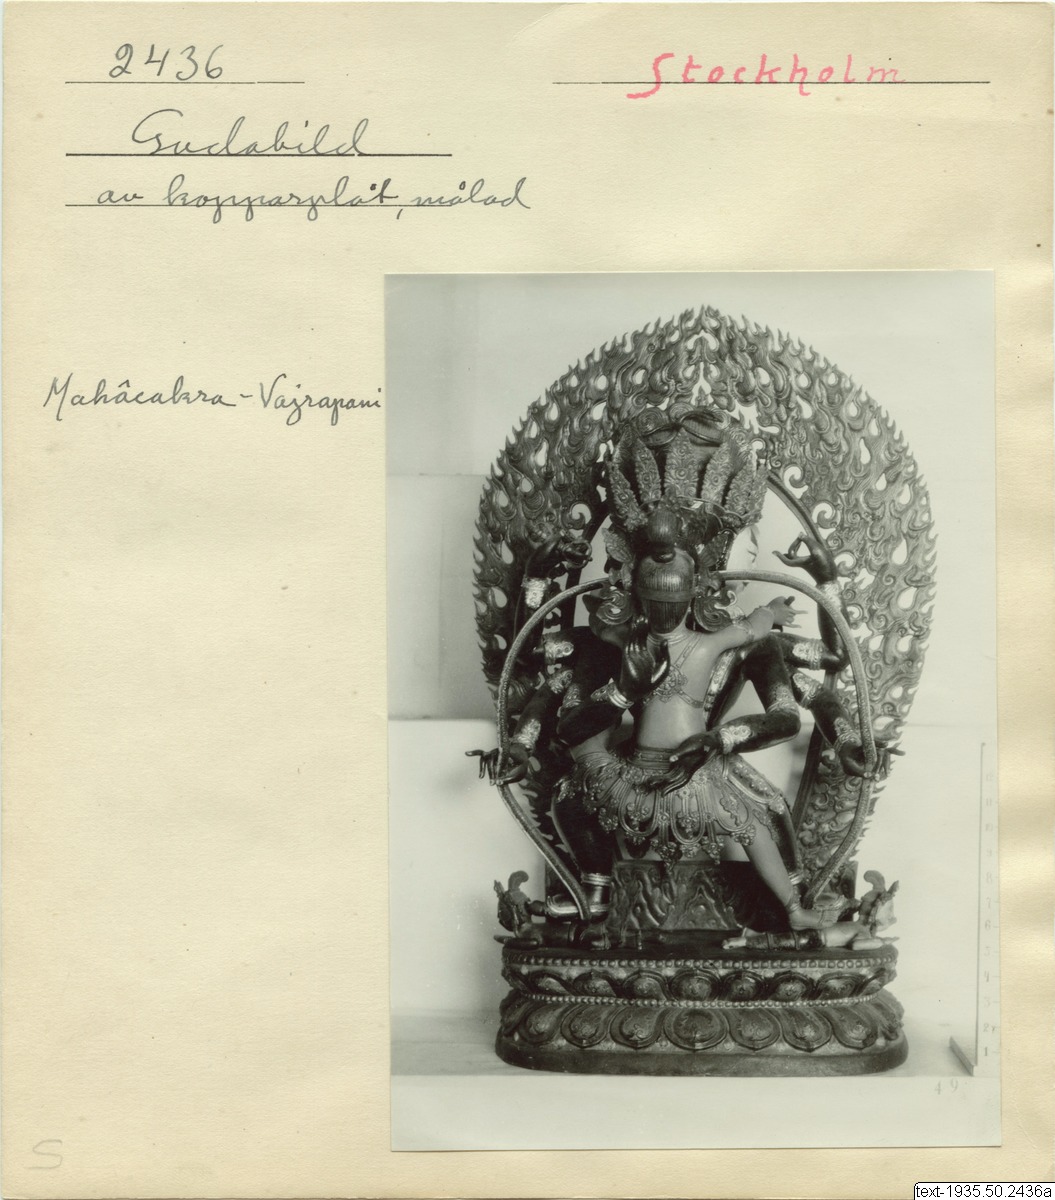 2436
Stockholm
Gudabild
av kopparplåt, målad
Mahâcakra - Vajrapani
8
7
6
5
4
3
2
1
49
S
text-1935.50.2436a